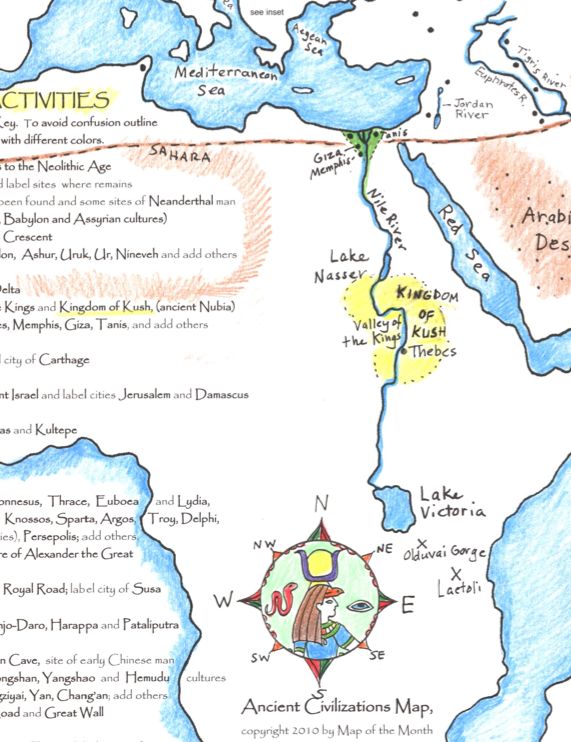 see inset
Aegean
Sea
Mediterranean
Sea
Tigris River
Euphrates R.
Jordan
River
ACTIVITIES
Key. To avoid confusion outline
with different colors.
SAHARA
Giza
Memphis
Tanis
s to the Neolithic Age
d label sites where remains
been found and some sites of Neanderthal man
, Babylon and Assyrian cultures)
Crescent
lon, Ashur, Uruk, Ur, Nineveh and add others
Nile River
Red Sea
Arabi
Des
Lake
Nasser
Delta
e Kings and Kingdom of Kush, (ancient Nubia)
es, Memphis, Giza, Tanis, and add others
KINGDOM
OF
KUSH
Valley of
the Kings
Thebes
l city of Carthage
nt Israel and label cities Jerusalem and Damascus
as and Kultepe
onnesus, Thrace, Euboea and Lydia,
Knossos, Sparta, Argos, Troy, Delphi,
ies), Persepolis; add others
re of Alexander the Great
Royal Road; label city of Susa
njo-Daro, Harappa and Pataliputra
n Cave, site of early Chinese man
ongshan, Yangshao and Hemudu cultures
gziyai, Yan, Chang'an; add others
oad and Great Wall
Lake
Victoria
X
Olduvai Gorge
X
Laetoli
N
NW
NE
W
E
SW
SE
S
Ancient Civilizations Map,
copyright 2010 by Map of the Month